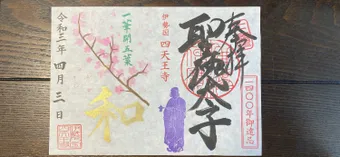 奉拝
聖徳太子
一四〇〇年御遠忌
伊勢国 四天王寺
一筆開五葉
和
令和三年四月三日